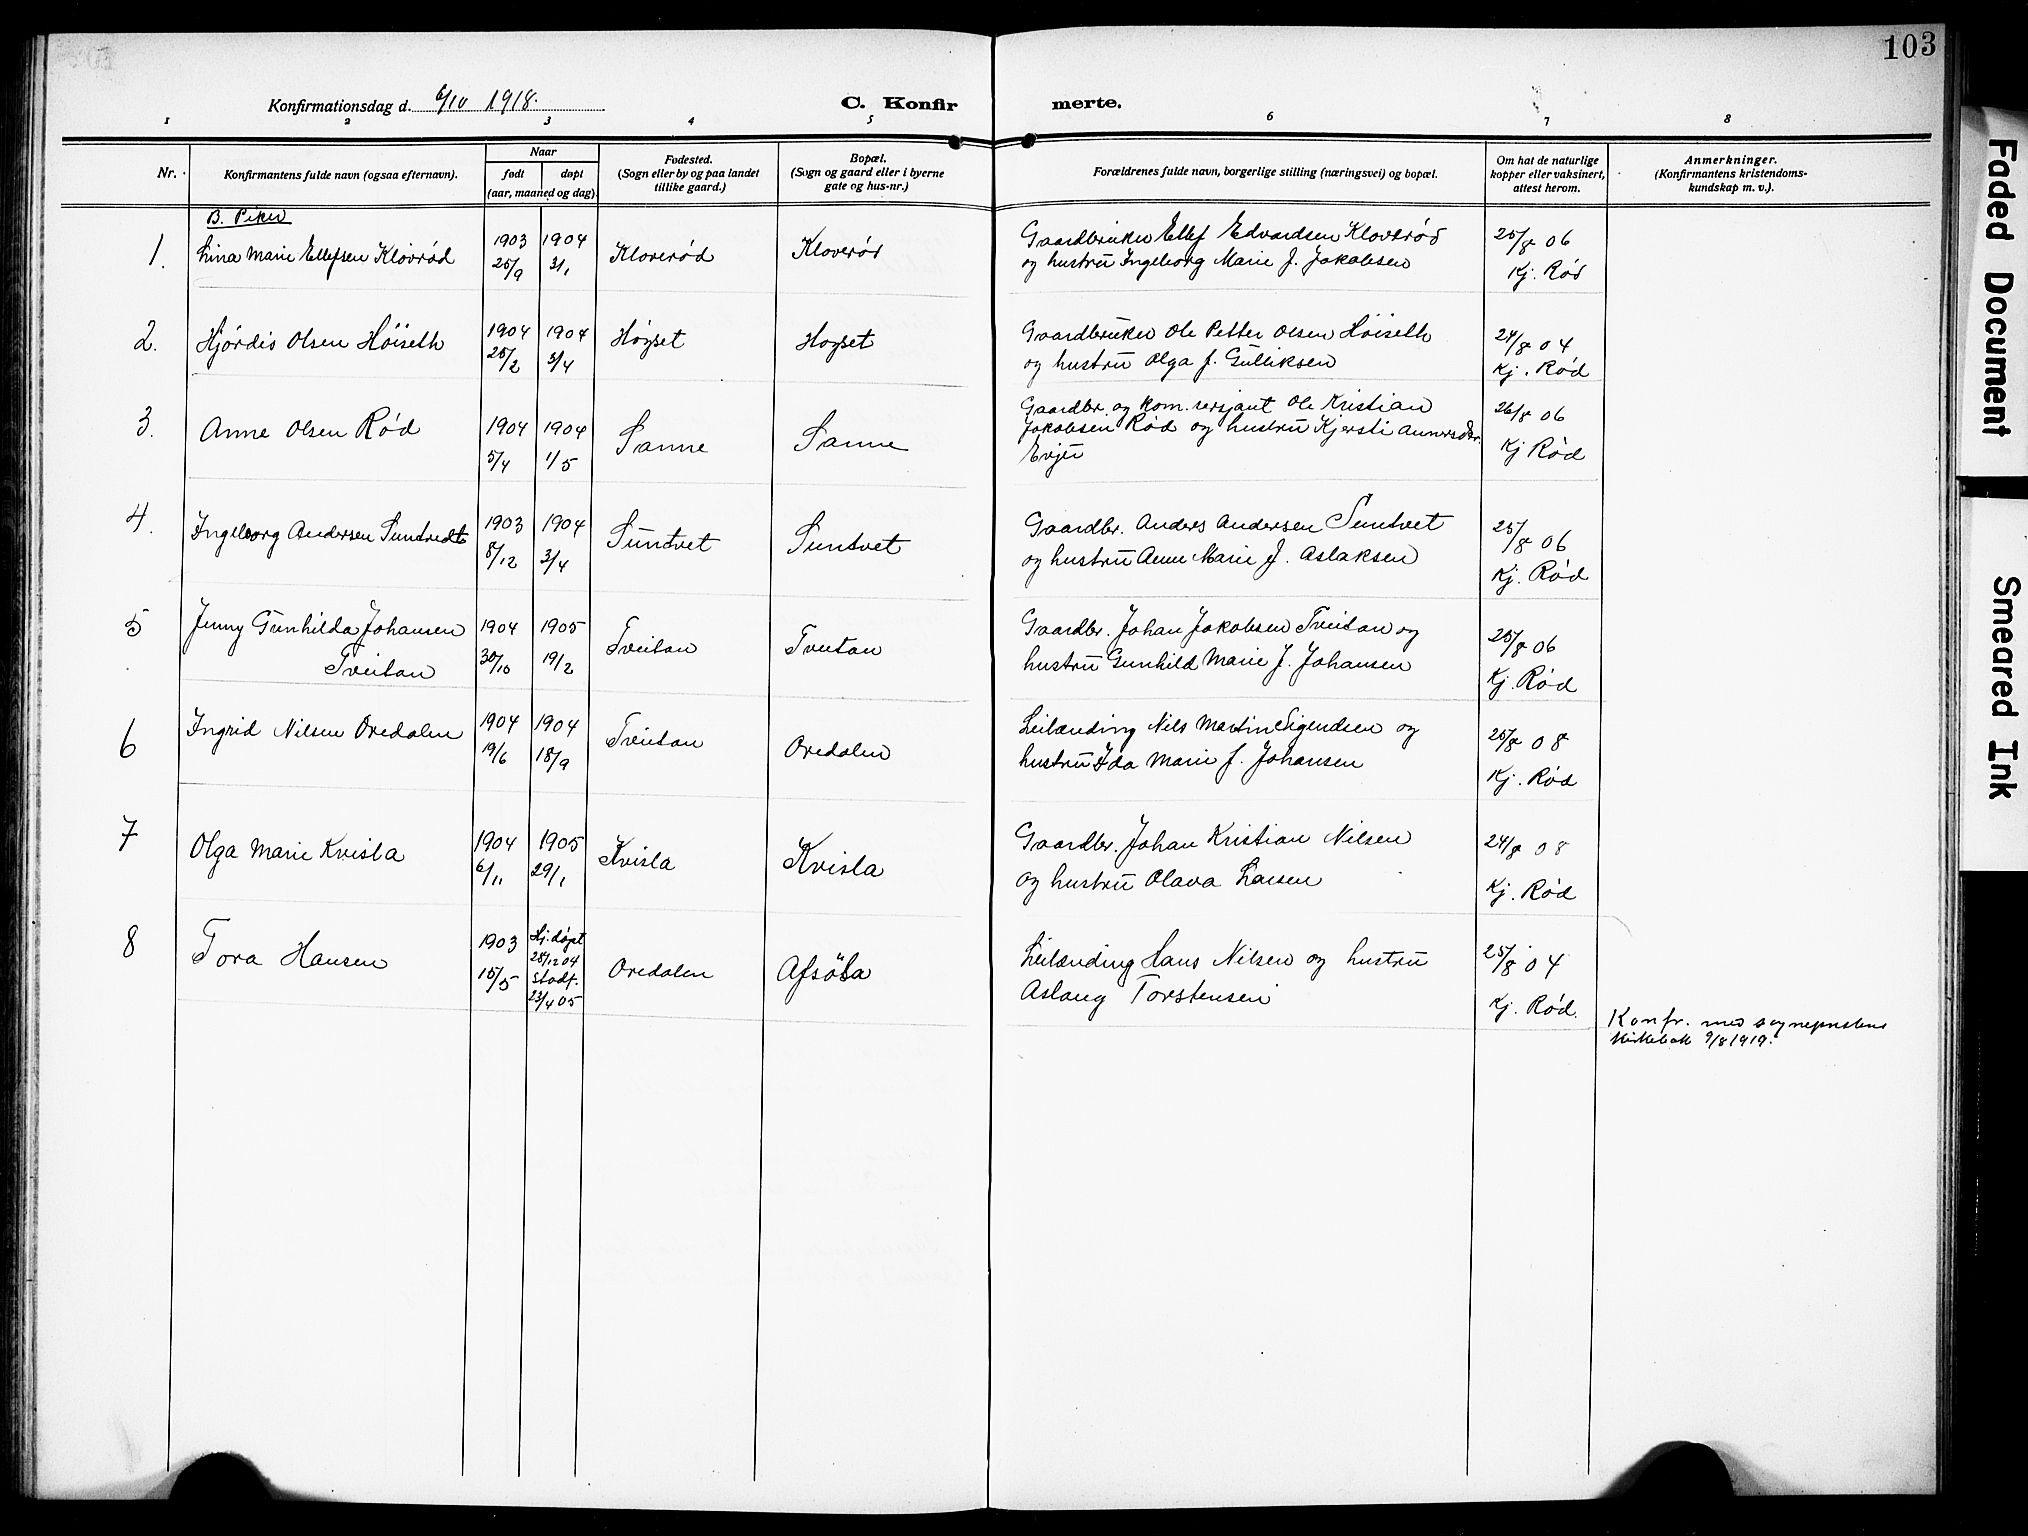 103
Konfirmationsdag d. 6/10 1918.
C. Konfirmerte.
1 2 3 4 5 6 7 8
Nr.
Konfirmantens fulde navn (ogsaa efternavn).
Naar
født døpt
(aar, maaned og dag)
Fødested.
(Sogn eller by og paa landet
tillike gaard.)
Bopæl.
(Sogn og gaard eller i byerne
gate og hus-nr.)
Forældrenes fulde navn, borgerlige stilling (næringsvei) og bopæl.
Om hat de naturlige
kopper eller vaksinert,
attest herom.
Anmerkninger.
(Konfirmantens kristendoms-
kundskap m. v.).
B. Piker
1. Lina Marie Ellefsen Klovrød
1903 25/9
1904 3/1
Kloverød
Kloverød
Gaardbruker Ellef Edvardsen Kloverød
og hustru Ingeborg Marie J. Jakobsen
25/8 06
Kj. Rød
2. Hjørdis Olsen Höiseth
1904 25/2
1904 3/4
Høgset
Hogset
Gaardbruker Ole Petter Olsen Höiseth
og hustru Olga J. Gulliksen
24/8 04
Kj. Rød
3. Anne Olsen Rød
1904 5/4
1904 1/5
Sanne
Sanne
Gaardbr. og kom.rersjant Ole Kristian
Jakobsen Rød og hustru Kjersti Annersdtr.
Evju
26/8 06
Kj Rød
4. Ingeborg Andersen Suntvedt
1903 8/12
1904 3/4
Suntvet
Suntvet
Gaardbr. Anders Andersen Suntvet
og hustru Anne Marie J. Aslaksen
25/8 06
Kj. Rød
5 Jenny Gunhilda Johansen
Tveitan
1904 30/10
1905 19/2
Tveitan
Tveitan
Gaardbr. Johan Jakobsen Tveitan og
hustru Gunhild Marie J. Johansen
25/8 06
Kj. Rød
6 Ingrid Nilsen Oredalen
1904 19/6
1904 18/9
Tveitan
Oredalen
Leilænding Nils Martin Sigurdsen og
hustru Ida Marie J. Johansen
25/8 08
Kj. Rød
7 Olga Marie Kvisla
1904 6/11
1905 29/1
Kvisla
Kvisla
Gaardbr. Johan Kristian Nilsen
og hustru Olava Larsen
24/8 08
Kj. Rød
8 Tora Hansen
1903 15/5
Hj. døpt
28/12 04
Stadf.
23/4 05
Oredalen
Afsöla
Leilænding Hans Nilsen og hustru
Aslaug Torstensen
25/8 04
Kj. Rød.
Konfr. med sogneprestens
kirkebok 9/8 1919.
Faded Document
Smeared Ink